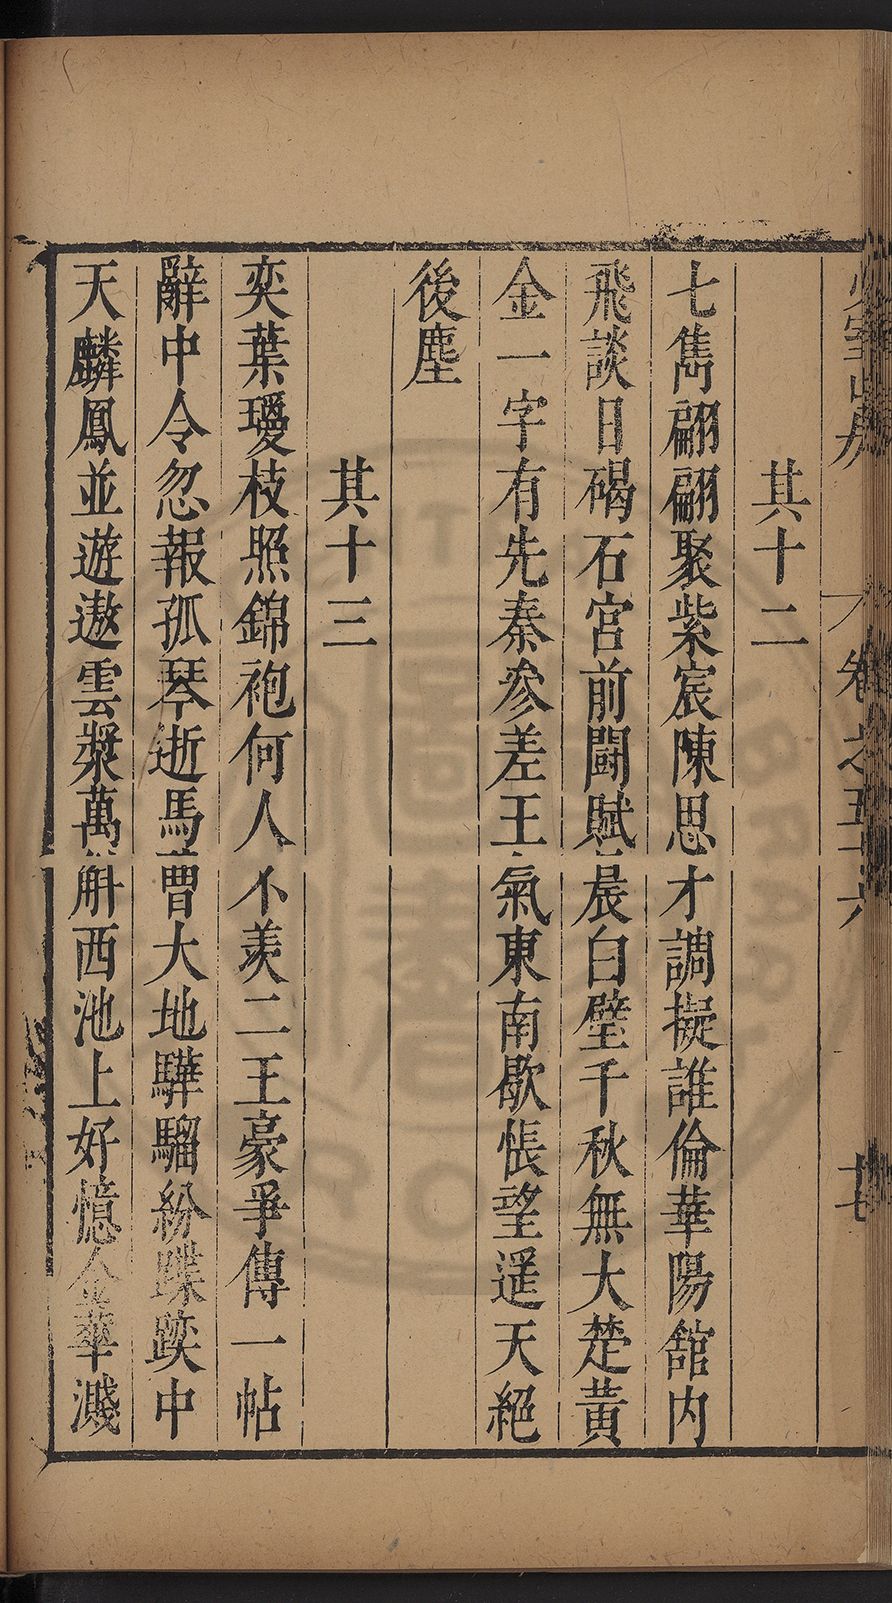 少室山房
卷之五十六
十七
其十二
七雋翩翩聚紫宸陳思才調擬誰倫華陽館内
飛談日碣石宮前鬪賦晨白璧千秋無大楚黃
金一字有先秦參差王氣東南歇悵望遥天絕
後塵
其十三
奕葉瓊枝照錦袍何人不羨二王豪爭傳一帖
辭中令忽報孤琴逝馬曹大地驊騮紛蹀䠆中
天麟鳳並遊遨雲漿萬斛西池上好憶金華濺